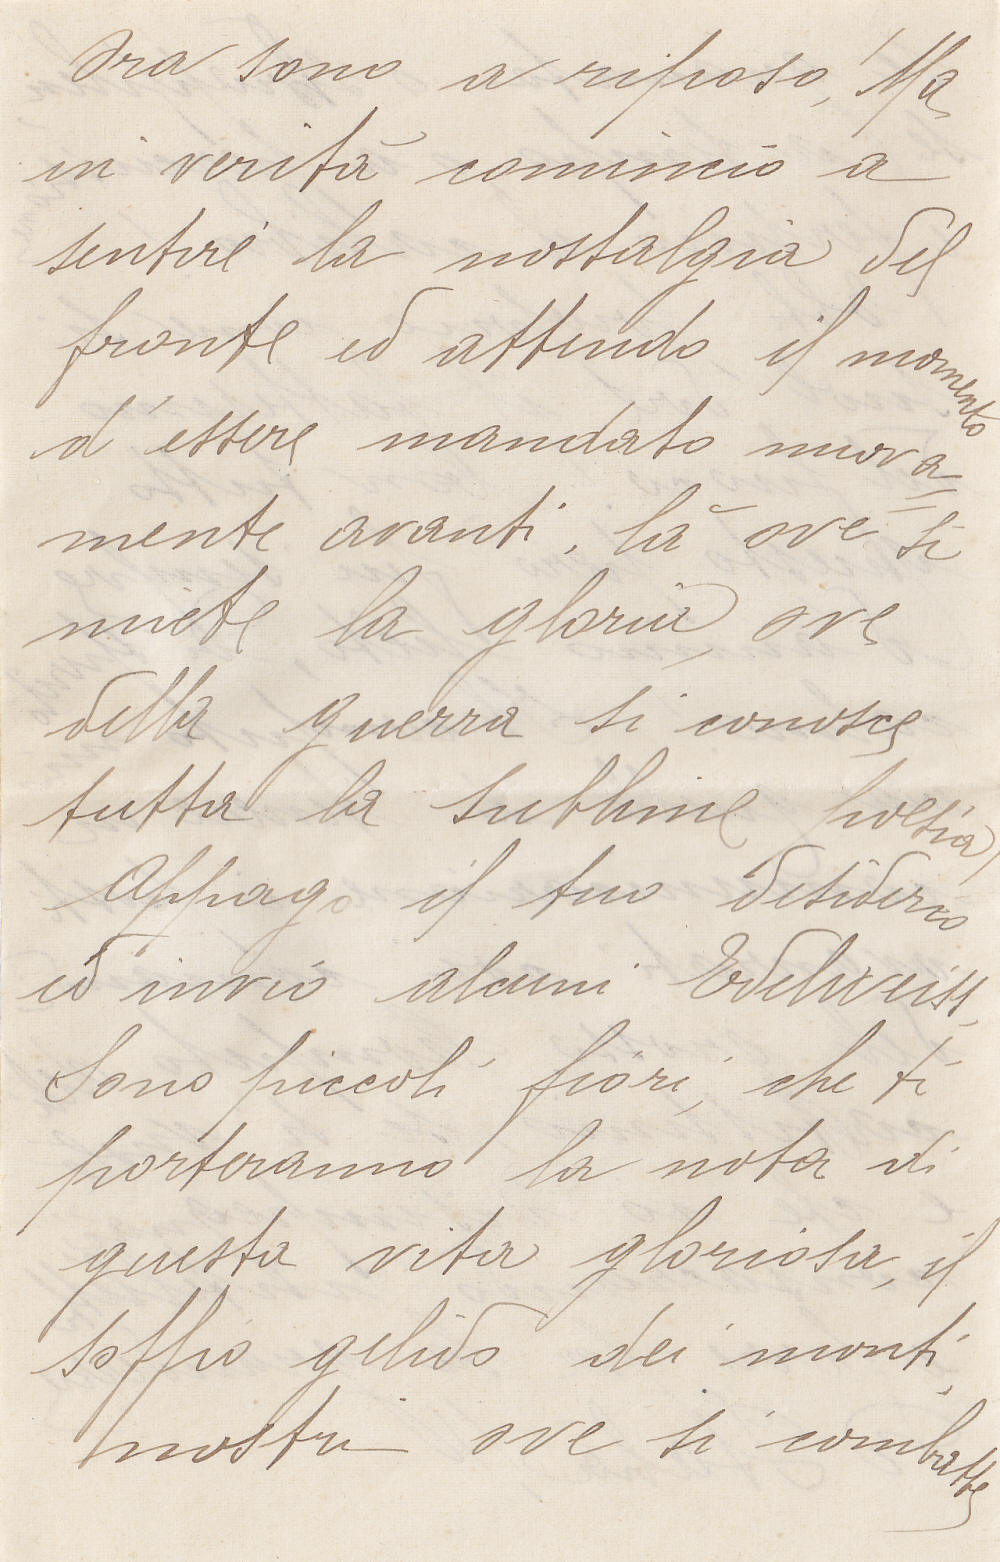 Ora sono a riposo, Ma
in verità comincio a
sentire la nostalgia del
fronte ed attendo il momento
d'essere mandato nuova=
mente avanti, là ove si
miete la gloria, ove
della guerra si conosce
tutta la sublime poesia,
Appago il tuo desiderio
ed invio alcuni Edelweiss,
Sono piccoli fiori, che ti
porteranno la nota di
questa vita gloriosa, il
soffio gelido dei monti
nostri ove si combatte